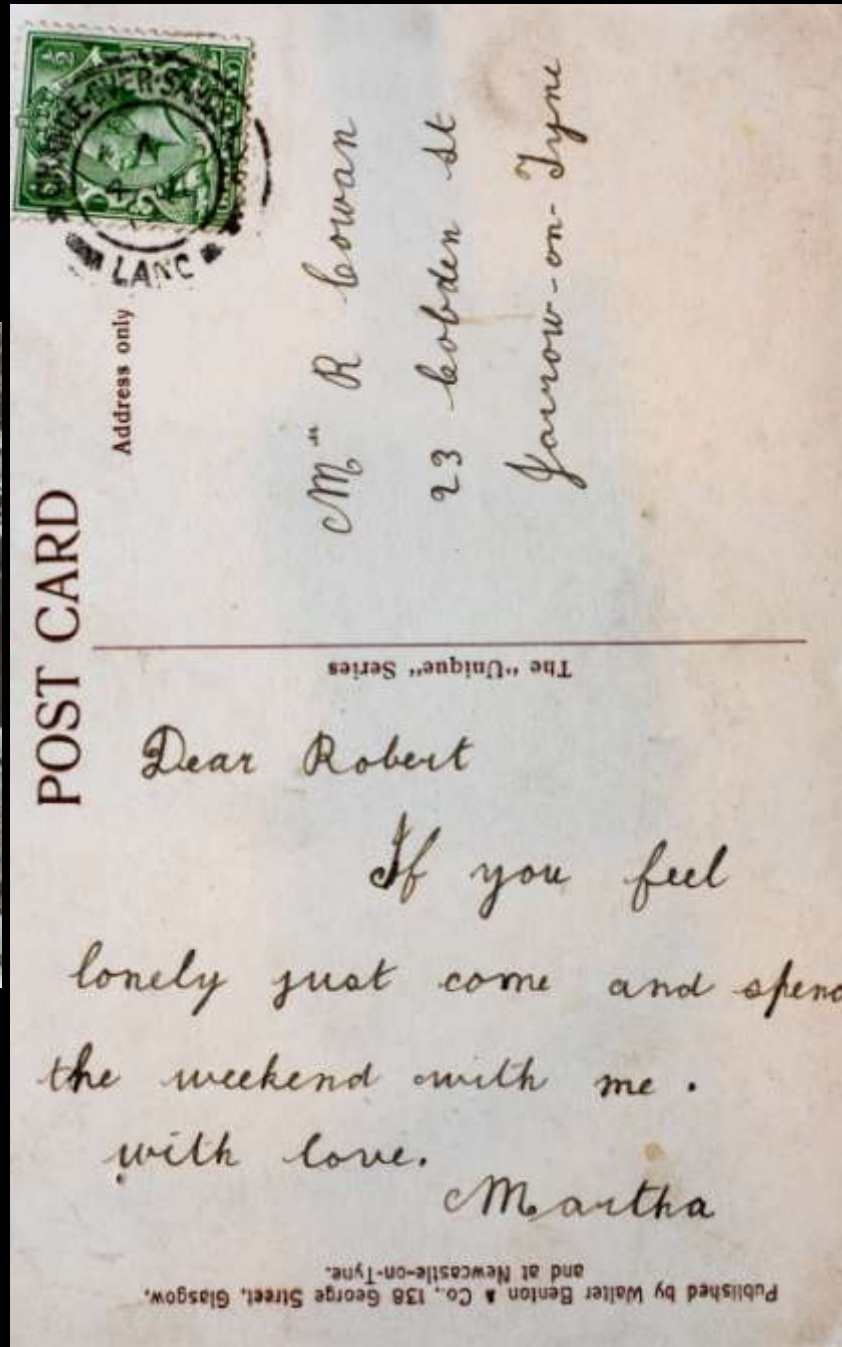 ½
GRANGE-OVER-SANDS
LANC
POST CARD
Address only
Mr R Cowan
23 Cobden St
Jarrow-on-Tyne
The "Unique" Series
Dear Robert
If you feel
lonely just come and spend
the weekend with me.
with love.
Martha
Published by Walter Benton & Co., 138 George Street, Glasgow,
and at Newcastle-on-Tyne.